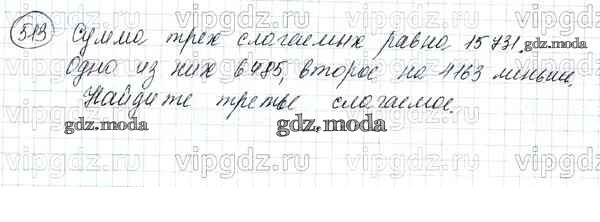 vipgdz.ru vipgdz.ru vipgdz.ru vipgdz.ru
513 Сумма трех слагаемых равна 15 731. gdz.moda
Одно из них 6485, второе на 4163 меньше.
vipgdz.ru vipgdz.ru vipgdz.ru vipgdz.ru
Найдите третье слагаемое.
gdz.moda gdz.moda
vipgdz.ru vipgdz.ru vipgdz.ru vipgdz.ru